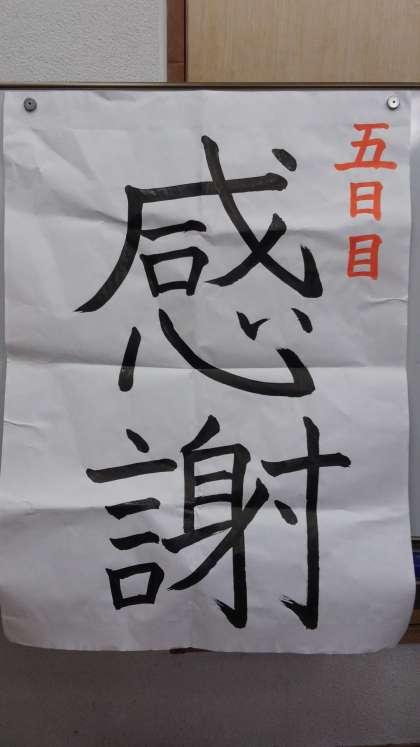 五日目
感謝